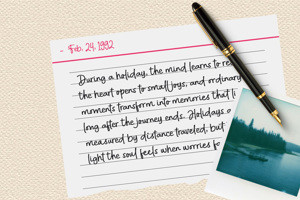 - Feb. 24. 1992
During a holiday, the mind learns to
the heart opens to small joys, and ordinary
moments transform into memories that
long after the journey ends. Holidays
measured by distance traveled, but
light the soul feels when worries